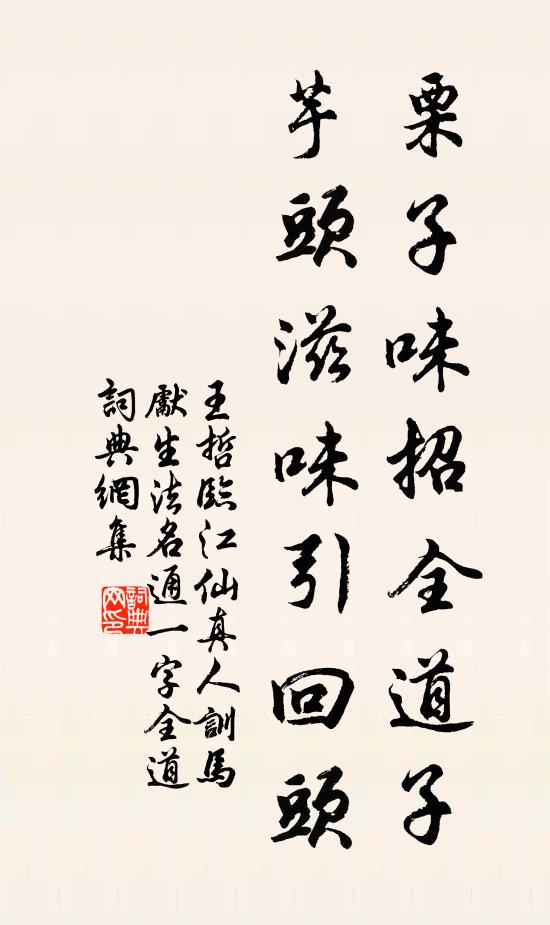 栗子味招全道子
芋頭滋味引回頭
王哲臨江仙真人訓馬
獻生法名通一字全道
詞典網集
詞典网印